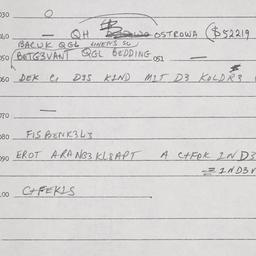 030 O
040 — QH OSTROWA ($52219
BACUK QGL LINENS SC
050 (BETG3VANT QGL BEDDING 051 —
060 DEK C, D3S KIND MIT D3 KOLDR3
070 —
080 FISBENK3L3
090 EROT ARANG3KL3APT A CHFOK IND3
= IND3R
100 CHFEKLS